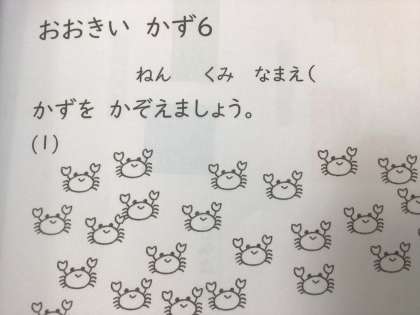 おおきい かず6
ねん くみ なまえ(
かずを かぞえましょう。
(1)